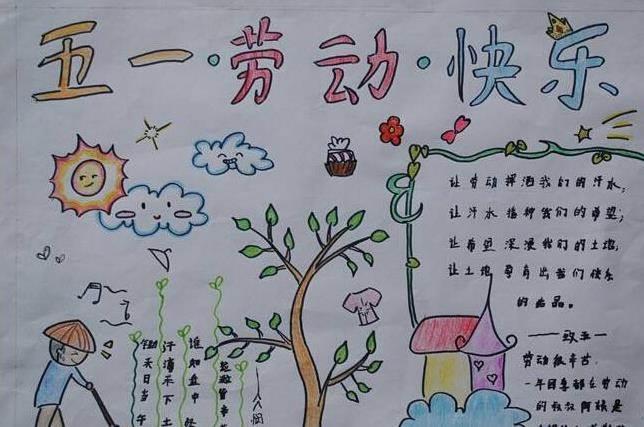 五一·劳动·快乐
让劳动挥洒我们的汗水,
让汗水播种我们的希望;
让希望深浸我们的土地,
让土地孕育出我们快乐
的品。
——致五一
劳动很辛苦,
一年四季都在劳动
的叔叔阿姨是
锄禾日当午
汗滴禾下土
谁知盘中
粒粒皆辛